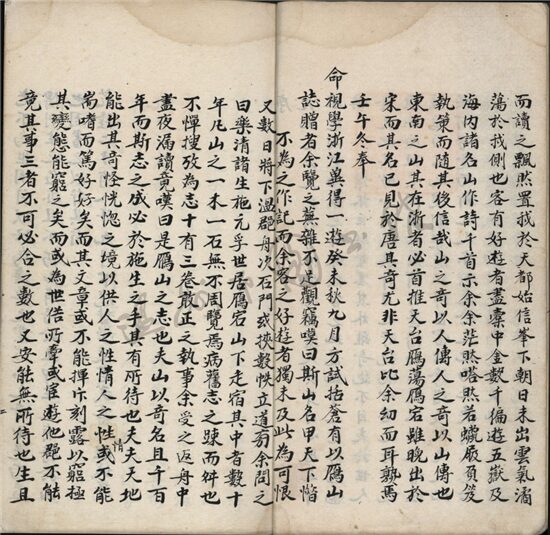 而讀之飄然置我於天都始信峯下朝日未出雲氣滃
蕩於我側也客有好遊者盡橐中金數千徧遊五嶽及
海內諸名山作詩千首示余余茫然嗒然若蠟屐負笈
執策而隨其後信哉山之奇以人傳人之奇以山傳也
東南之山其在浙者必首推天台鴈蕩鴈宕雖晚出於
宋而其名已見於唐其奇尤非天台比余幼而耳熟焉
壬午冬奉
命視學浙江兾得一遊癸未秋九月方試括蒼有以鴈山
誌贈者余覽之蕪雜不足觀竊嘆曰斯山名甲天下惜
不為之作記而余客之好遊者獨未及此為可恨
又數日將下溫郡舟次石門或挾數帙立道旁余問之
曰樂清諸生施元孚世居鴈宕山下走宿其中者數十
年凡山之一木一石無不周覽焉病舊志之踈而舛也
不憚搜攷為志十有三卷敢正之執事余受之返舟中
晝夜滿讀竟嘆曰是鴈山之志也夫山以奇名且千百
年而斯志之成必於施生之手其有所待也夫夫天地
能出其奇怪恍惚之境以供人之性情人之性或不能
情
嵩嗜而篤好好矣而其文章或不能揮斥刻露以窮極
其變態能窮之矣而或為世俗所牽或宦遊他郡不能
竟其事三者不可必合之數也又安能無所待也生且